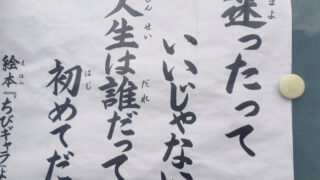 迷ったって
いいじゃない
人生は誰だって
初めてだ
絵本『ちびギャラ』よ